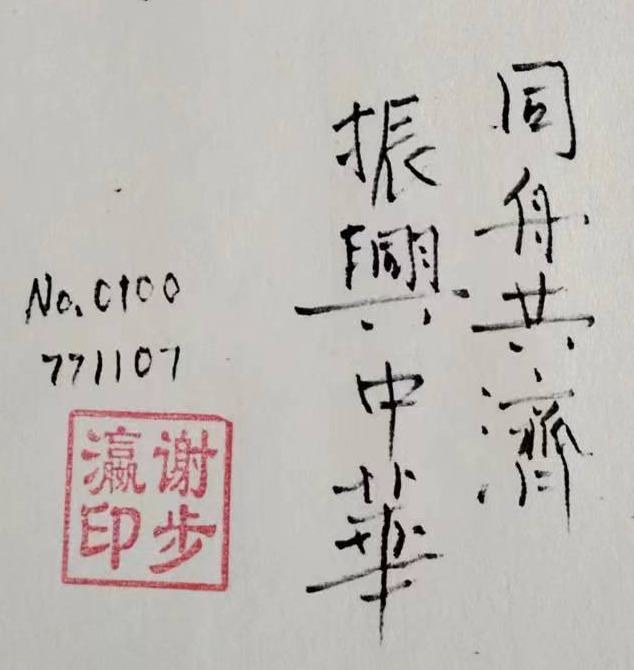 同舟共濟
振興中華
No. 0100
771107
谢步
瀛印